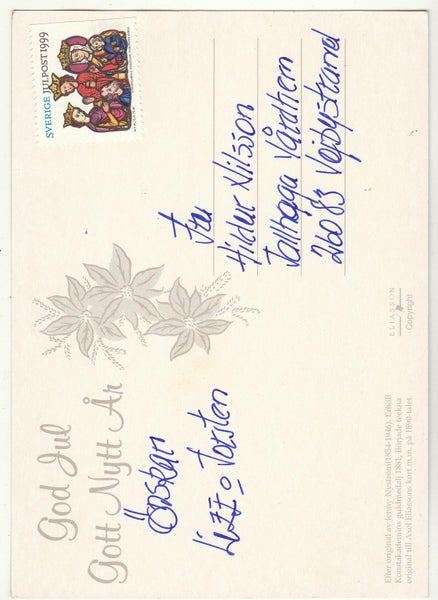 SVERIGE JULPOST 1999
God Jul
Gott Nytt År
Önskar
Lizzi o Torsten
Fru
Hildur Nilsson
Tallhöga Vårdhem
260 83 Vejbystrand
ELIASSON
Copyright
Efter original av Jenny Nyström(1854-1946). Erhöll
Konstakademins guldmedalj 1881. Började teckna
original till Axel Eliassons kort m.m. på 1890-talet.